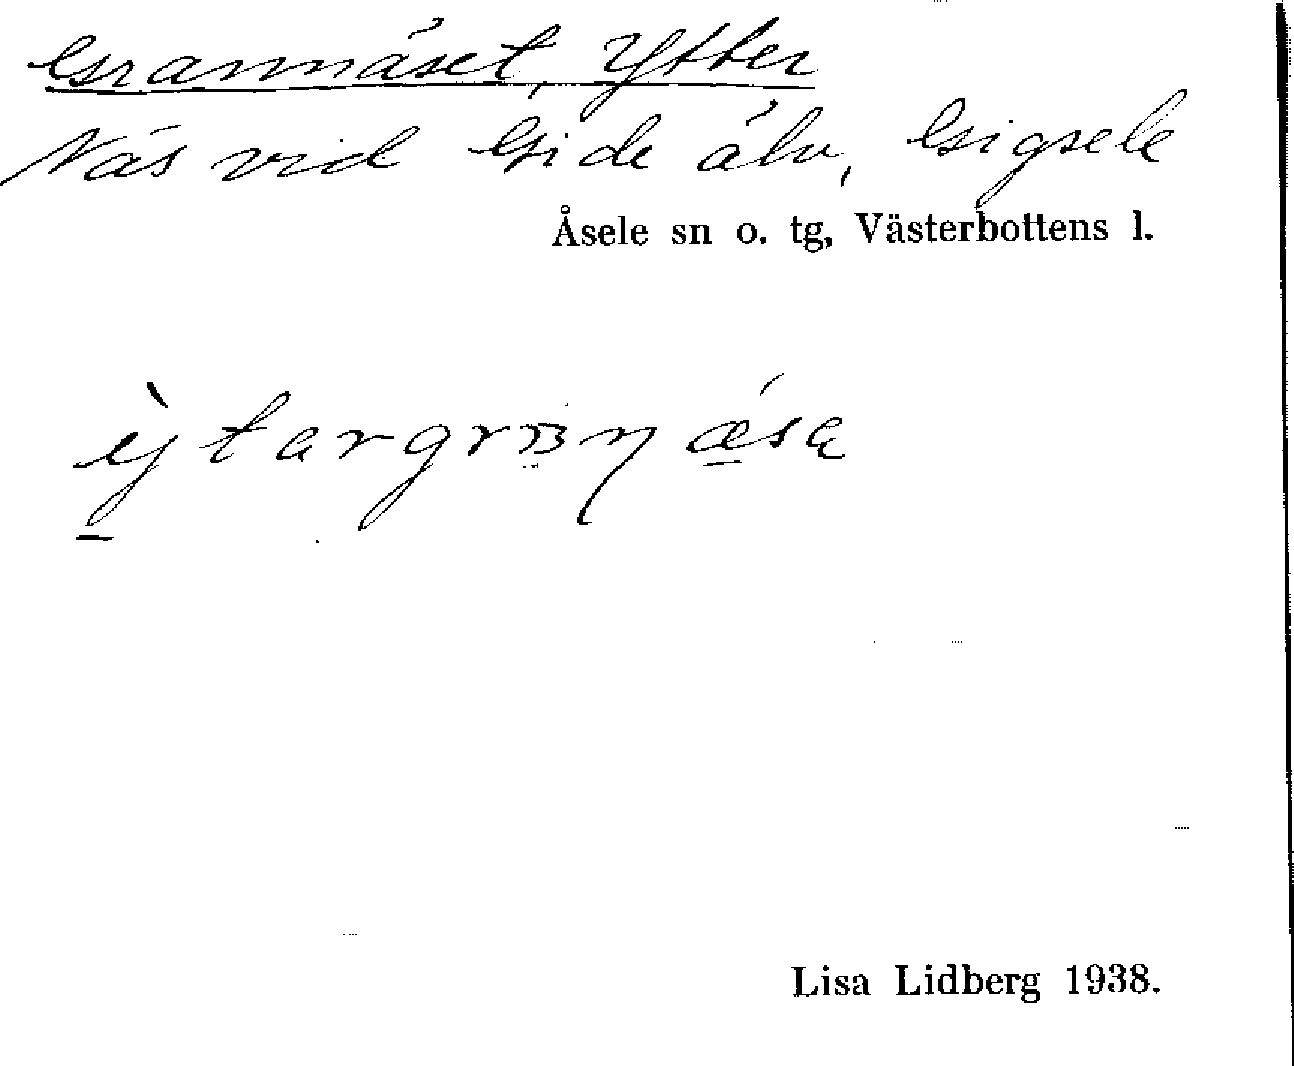 Grannäset, Ytter
Näs vid Gide älv, Gigsele
Åsele sn o. tg, Västerbottens l.
Lisa Lidberg 1938.